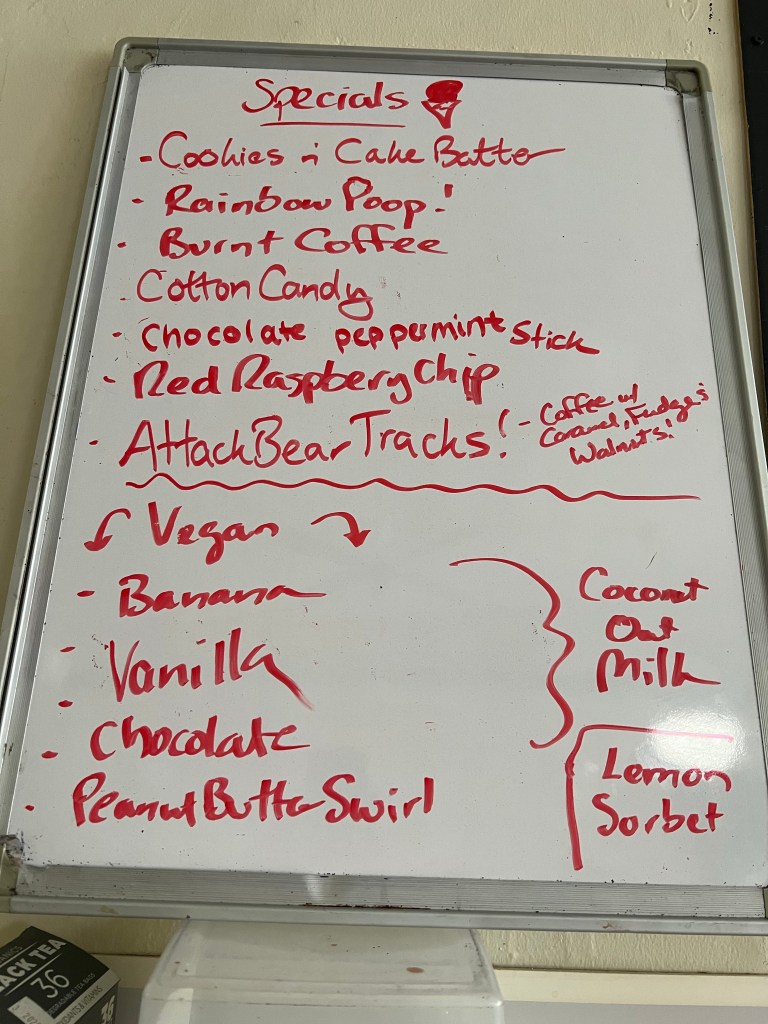 Specials
- Cookies n Cake Batter
- Rainbow Poop!
- Burnt Coffee
- Cotton Candy
- Chocolate peppermint Stick
- Red Raspbery Chip
- Attack Bear Tracks! - Coffee w/
Caramel, Fudge &
Walnuts!
Vegan
- Banana
- Vanilla
- Chocolate
- Peanut Butter Swirl
Coconut
Oat
Milk
Lemon
Sorbet
ACK TEA
36